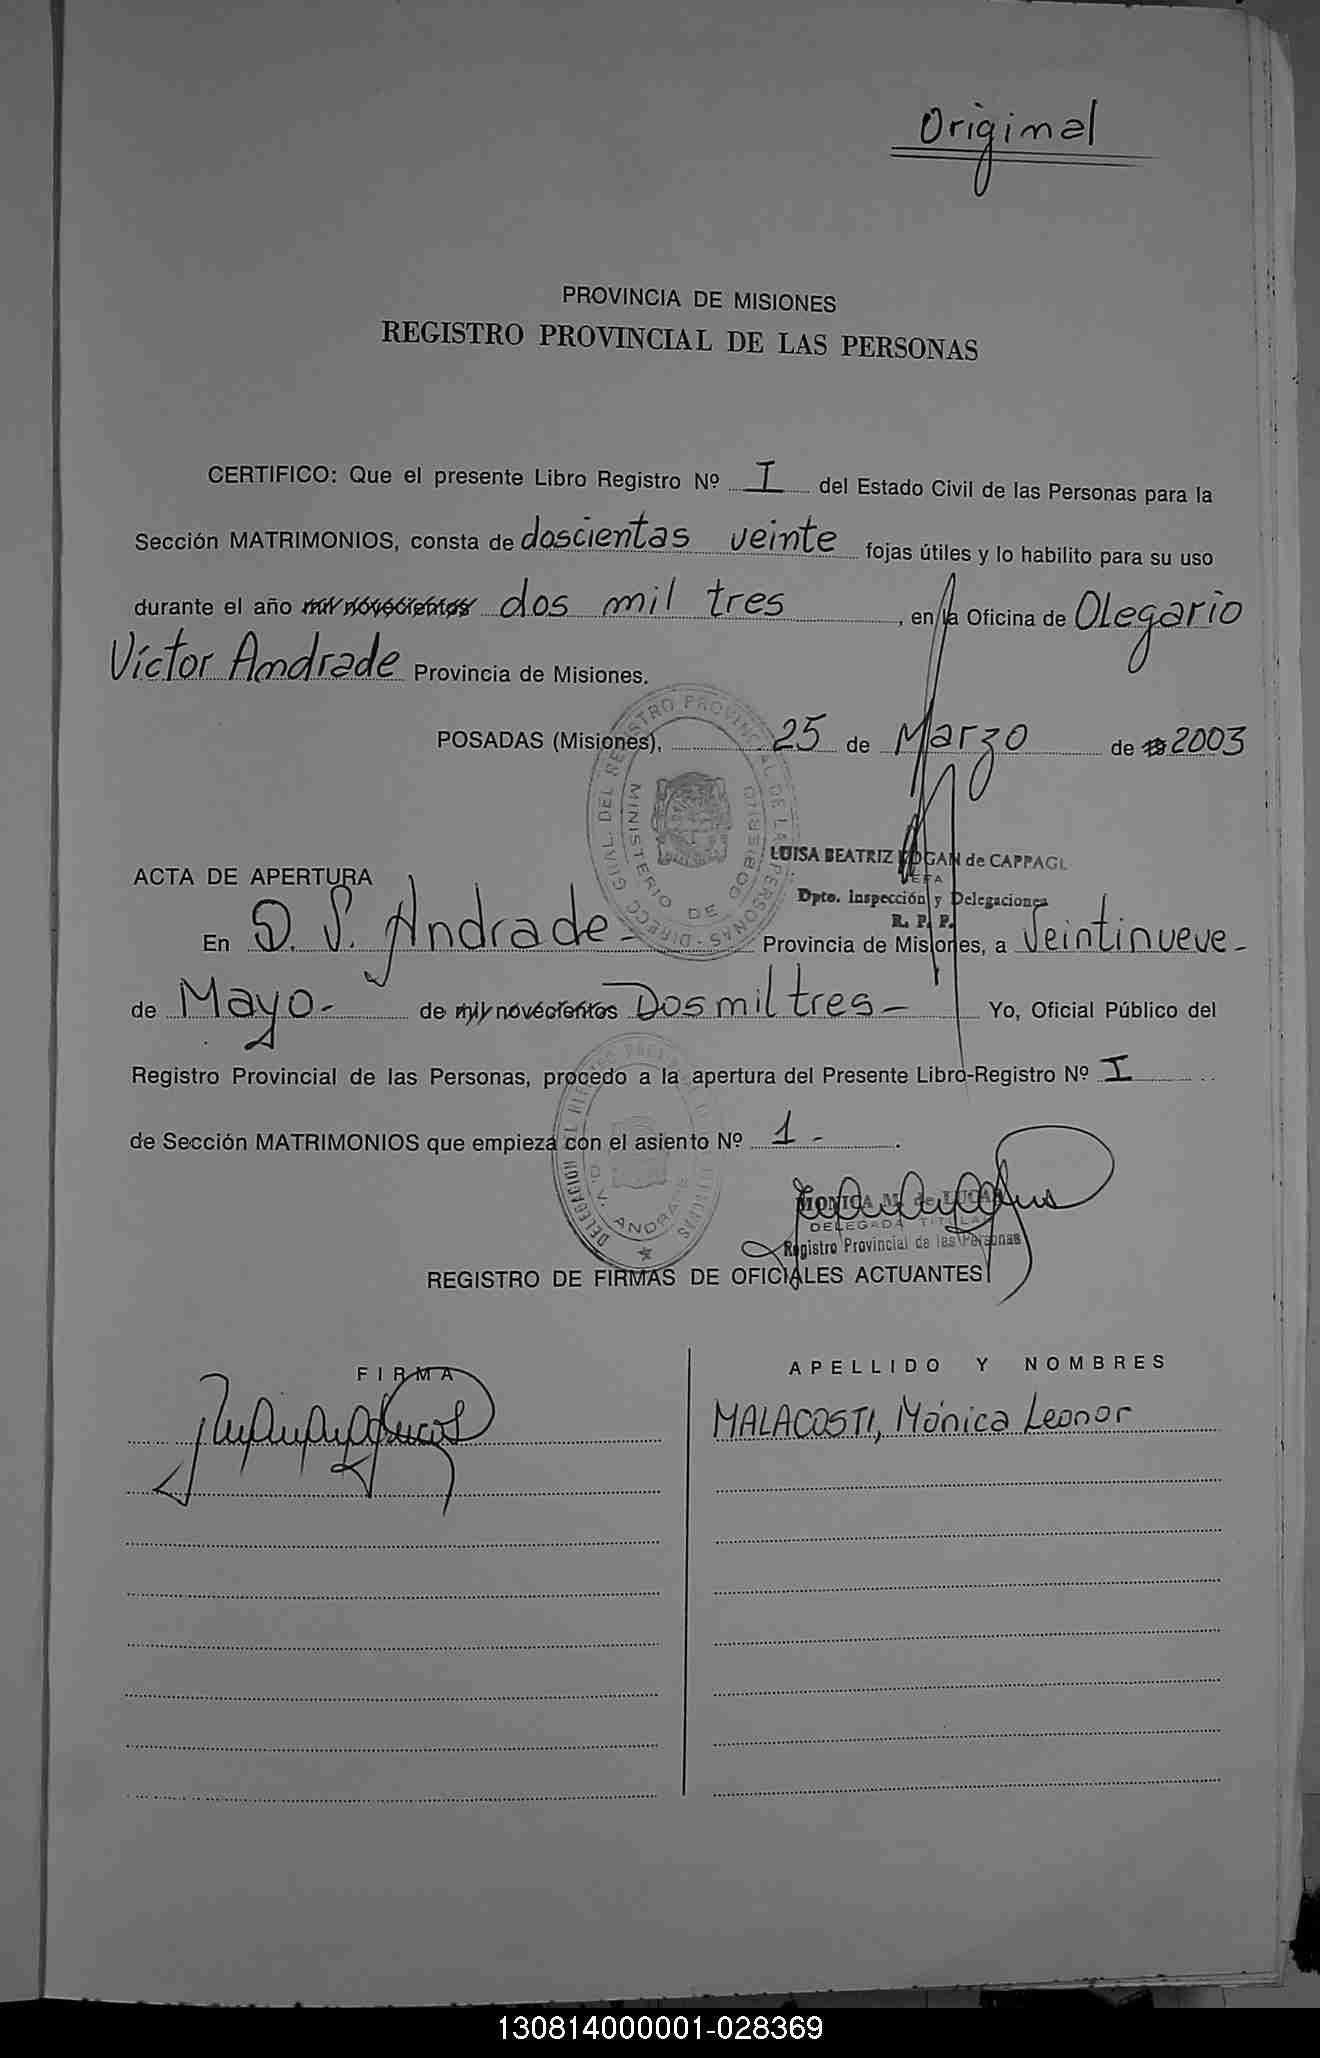 Original
PROVINCIA DE MISIONES
REGISTRO PROVINCIAL DE LAS PERSONAS
CERTIFICO: Que el presente Libro Registro Nº I del Estado Civil de las Personas para la
Sección MATRIMONIOS, consta de doscientas veinte fojas útiles y lo habilito para su uso
durante el año mil novecientos dos mil tres, en la Oficina de Olegario
Víctor Andrade Provincia de Misiones.
POSADAS (Misiones), 25 de Marzo de 19 2003
DIRECC. GRAL. DEL REGISTRO PROVINCIAL DE LAS PERSONAS
MINISTERIO DE GOBIERNO
LUISA BEATRIZ de CAPPAGL
JEFA
Dpto. Inspección y Delegaciones
R. P. P.
ACTA DE APERTURA
En O. V. Andrade- Provincia de Misiones, a Veintinueve-
de Mayo.- de mil novecientos Dos mil tres- Yo, Oficial Público del
Registro Provincial de las Personas, procedo a la apertura del Presente Libro-Registro Nº I
de Sección MATRIMONIOS que empieza con el asiento Nº 1-.
DELEGACION
O. V. ANDRADE
MONICA M. de LUCAS
DELEGADA TITULAR
Registro Provincial de las Personas
REGISTRO DE FIRMAS DE OFICIALES ACTUANTES
FIRMA
APELLIDO Y NOMBRES
MALACOSTI, Mónica Leonor
130814000001-028369